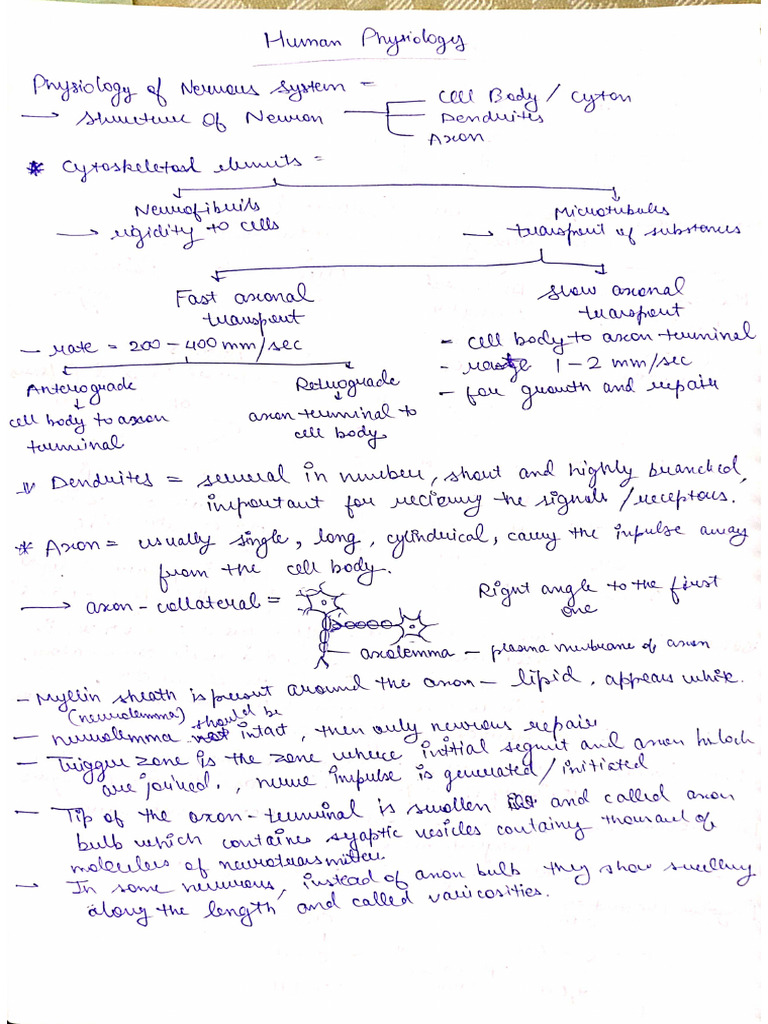 Human Physiology
Physiology of Nervous System =
→ structure of Neuron
Cell Body / Cyton
Dendrites
Axon
* Cytoskeletal elements =
Neurofibrils
→ rigidity to cells
Microtubules
→ transport of substances
Fast axonal
transport
- rate = 200 - 400 mm/sec
Slow axonal
transport
- cell body to axon terminal
- rate 1-2 mm/sec
- for growth and repair
Anterograde
↓
cell body to axon
terminal
Retrograde
↓
axon terminal to
cell body
Dendrites = several in number, short and highly branched,
important for recieving the signals / receptors.
* Axon = usually single, long, cylindrical, carry the impulse away
from the cell body.
→ axon-collateral =
Right angle to the first
one
axolemma - plasma membrane of axon
- Myelin sheath is present around the axon - lipid, appears white.
(neurolemma) should be
- neurolemma not intact, then only neurons repair
- Trigger zone is the zone where initial segment and axon hilock
are joined., nerve impulse is generated/initiated
- Tip of the axon-terminal is swollen and called axon
bulb which contains synaptic vesicles containing thousand of
molecules of neurotransmitter.
- In some neurons, instead of axon bulb they show swelling
along the length and called varicosities.